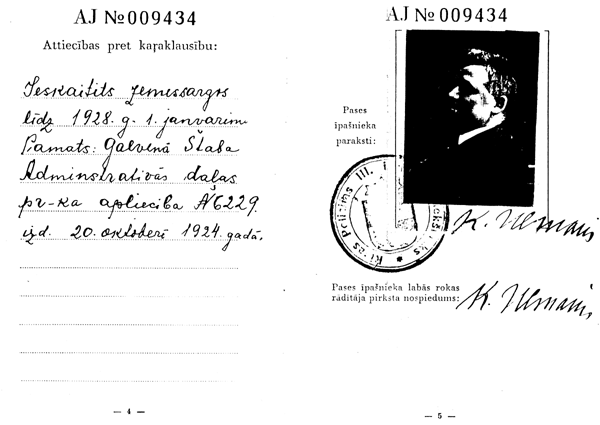 AJ №009434
Attiecības pret karaklausību:
Ieskaitīts zemessargos
līdz 1928. g. 1. janvarim
Pamats: Galvenā Štaba
Adminstratīvās daļas
pr-ka apliecība №6229.
izd. 20. oktoberī 1924. gadā.
— 4 —
AJ №009434
Pases
īpašnieka
paraksti:
III. i
K. Ulmanis
Pases īpašnieka labās rokas
rādītāja pirksta nospiedums:
K. Ulmanis
— 5 —